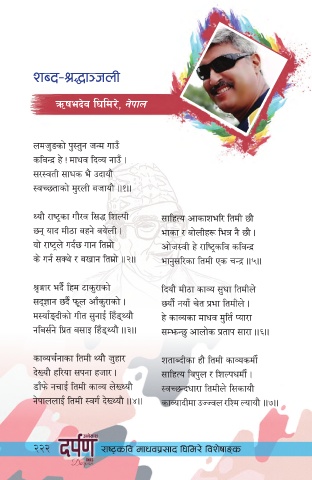 शब्द-श्रद्धाञ्जली
ऋषभदेव घिमिरे, नेपाल
लमजुङको पुस्तुन जन्म गाउँ
कविन्द्र हे ! माधव दिव्य नाउँ ।
सरस्वती साधक भै उदायौ
स्वच्छताको मुरली बजायौ ॥१॥
थ्यौ राष्ट्रका गौरव सिद्ध शिल्पी
छन् याद मीठा बहने बबेली ।
यो राष्ट्रले गर्दछ गान तिम्रो
के गर्न सक्थे र बखान तिम्रो ॥२॥
श्रृङ्गार भर्दै हिम टाकुराको
सद्ज्ञान छर्दै फूल आँकुराको ।
मर्स्याङ्दीको गीत सुनाई हिँड्थ्यौ
नबिर्सने प्रित बसाइ हिँड्थ्यौ ॥३॥
काव्यर्चनाका तिमी थ्यौ जुहार
देख्यौ हरिया सपना हजार ।
डाँफे नचाई तिमी काव्य लेख्थ्यौ
नेपाललाई तिमी स्वर्ग देख्थ्यौ ॥४॥
साहित्य आकाशभरि तिमी छौ
भाका र बोलीहरू भित्र नै छौ ।
ओजस्वी हे राष्ट्रिकवि कविन्द्र
भानुसरिका तिमी एक चन्द्र ॥५॥
दियौ मीठा काव्य सुधा तिमीले
छर्यौ नयाँ चेत प्रभा तिमीले ।
हे काव्यका माधव मुर्ति प्यारा
सम्झन्छु आलोक प्रताप सारा ॥६॥
शताब्दीका हौ तिमी काव्यकर्मी
साहित्य विपुल र शिल्पधर्मी ।
स्वच्छन्दधारा तिमीले सिकायौ
काव्यादीमा उज्ज्वल रश्मि ल्यायौ ॥७॥
२२२ दर्पण राष्ट्रकवि माधवप्रसाद घिमिरे विशेषाङ्क